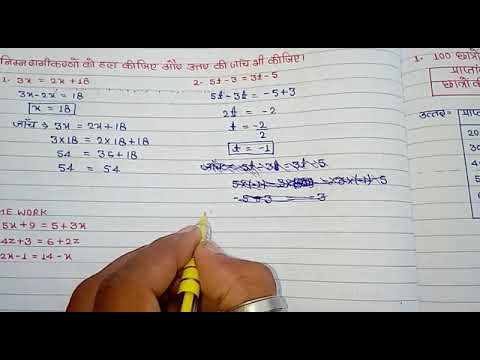 निम्न समीकरणों को हल कीजिए और उत्तर की जाँच भी कीजिए।
1. 3x = 2x + 18
3x - 2x = 18
x = 18
जाँच → 3x = 2x + 18
3 x 18 = 2 x 18 + 18
54 = 36 + 18
54 = 54
2. 5t - 3 = 3t - 5
5t - 3t = -5 + 3
2t = -2
t = -2/2
t = -1
ME WORK
5x + 9 = 5 + 3x
4z + 3 = 6 + 2z
2x - 1 = 14 - x
1. 100 छात्रों
प्राप्तां
छात्रों की
उत्तर=
प्राप्त
20
30
40
50